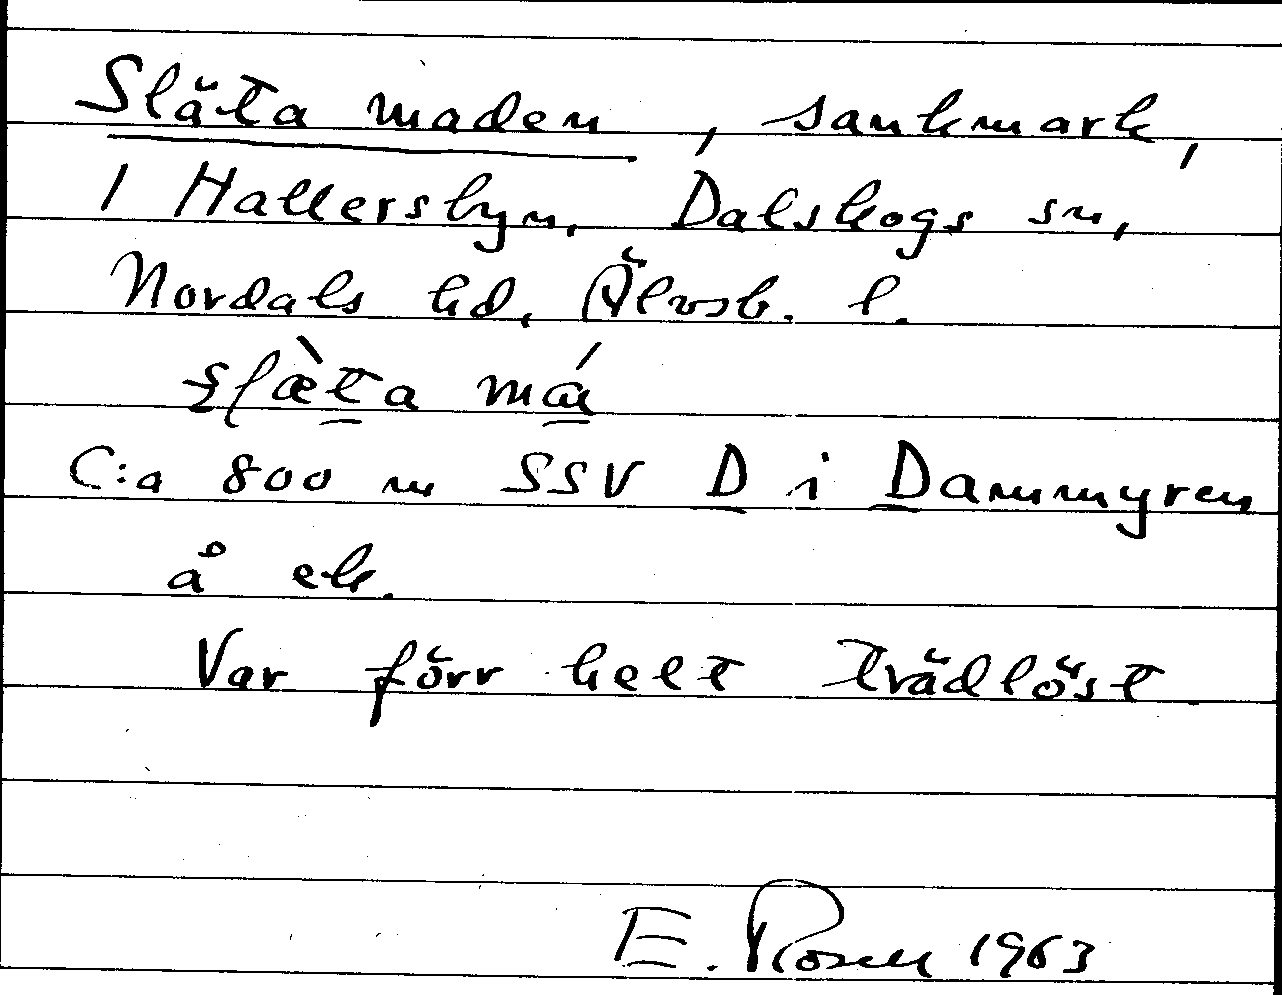 Släta maden, sankmark,
i Hallersbyn, Dalskogs sn,
Nordals hd, Älvsb. l.
slæ̀ta má
C:a 800 m SSV D i Dammyren
å ek.
Var förr helt trädlöst
E. Rosen 1963